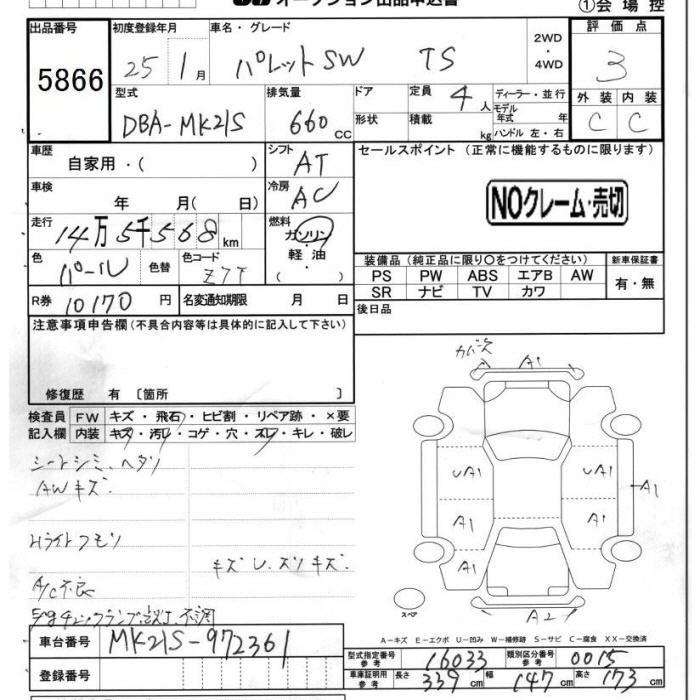 オークション出品申込書
①会場控
出品番号
5866
初度登録年月
25 1月
車名・グレード
パレットSW TS
2WD
・
4WD
評価点
3
型式
DBA-MK21S
排気量
660 CC
ドア
形状
定員 4人
積載 kg
ディーラー・並行
モデル年式 年
ハンドル 左・右
外装 内装
C C
車歴
自家用・( )
シフト
AT
セールスポイント (正常に機能するものに限ります)
NOクレーム・売切
車検
年 月( 日)
冷房
AC
走行
14万5千568km
燃料
ガソリン
・
軽油
( )
色
パール
色替
色コード
Z7T
装備品 (純正品に限り○をつけてください)
新車保証書
PS PW ABS エアB AW
SR ナビ TV カワ
有・無
R券 10170円
名変通知期限 月 日
後日品
注意事項申告欄(不具合内容等は具体的に記入して下さい)
修復歴 有 〔箇所 〕
検査員
記入欄
FW キズ・飛石・ヒビ割・リペア跡・×要
内装 キズ・汚レ・コゲ・穴・スレ・キレ・破レ
シートシミ、ヘタリ
AWキズ.
Hライトクモリ
キズ レ.ズリキズ.
A/C不良
A A1
UA1 UA1
A1
A1 A1
A1
A2
スペア
A-キズ E-エクボ U-凹み W-補修跡 S-サビ C-腐食 XX-交換済
車台番号
MK21S-972361
登録番号
型式指定番号
参考
16033
類別区分番号
参考
0015
車庫証明用
参考
長さ 339cm 幅 147cm 高さ 173cm